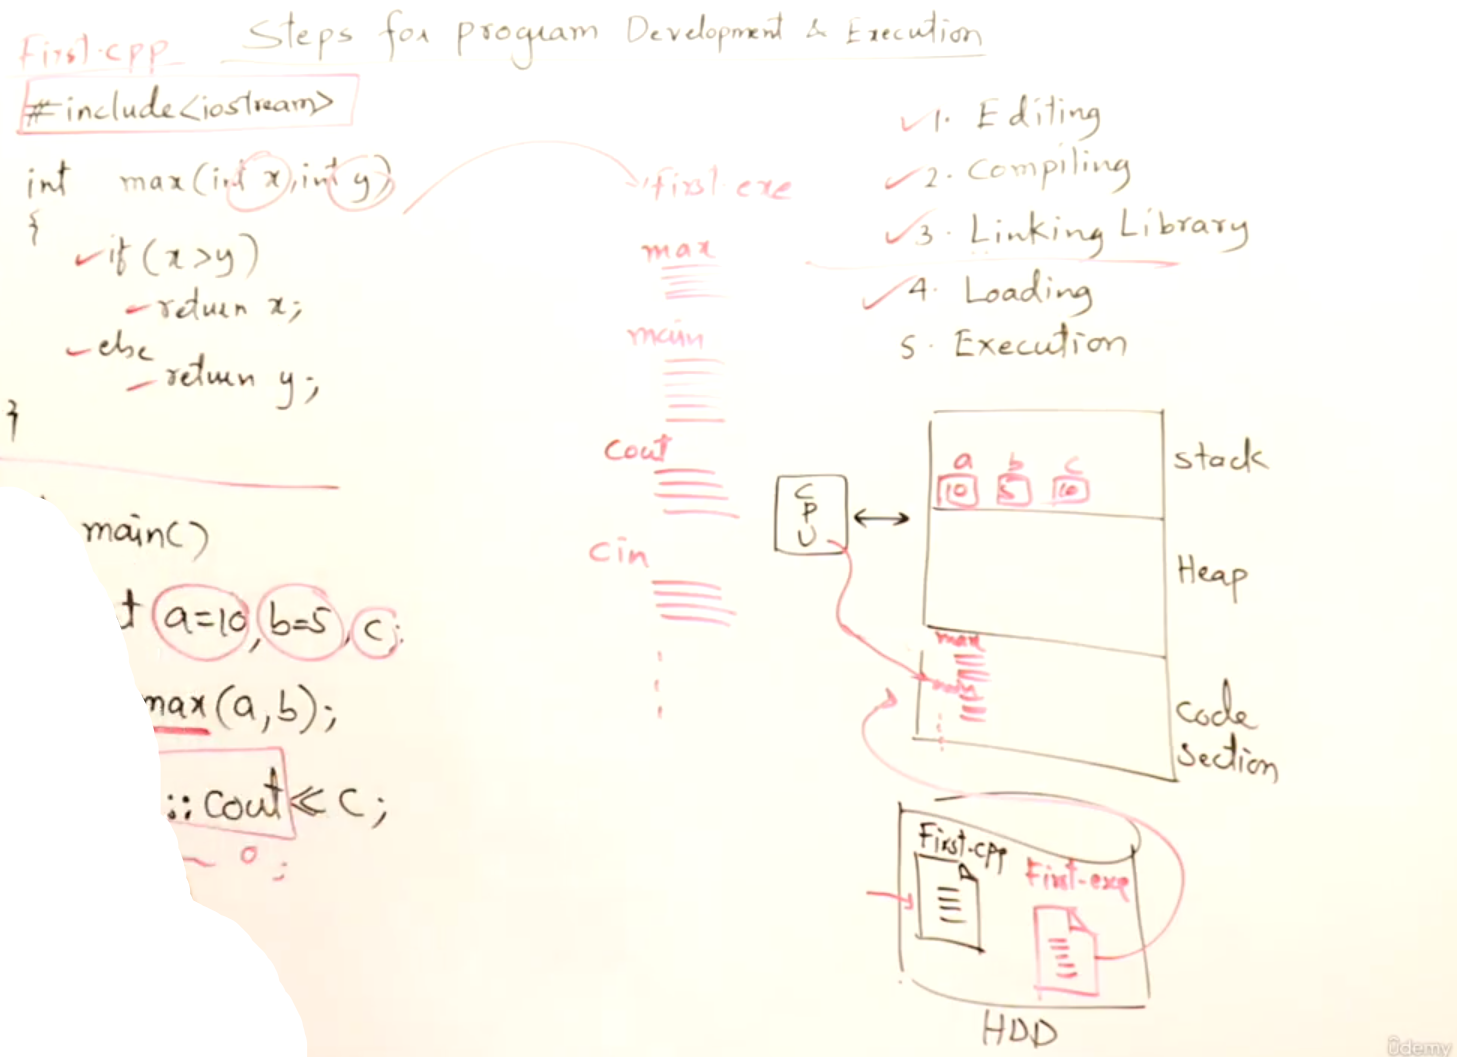 First.cpp
Steps for program Development & Execution
#include<iostream>
int max(int x, int y)
{
if (x>y)
return x;
else
return y;
}
main()
t a=10, b=5, c;
max(a,b);
:: cout << c;
0;
first.exe
max
main
cout
cin
1. Editing
2. Compiling
3. Linking Library
4. Loading
5. Execution
CPU
a b c
10 5 10
stack
Heap
max
main
Code
Section
First.cpp
First.exe
HDD
ûdemy